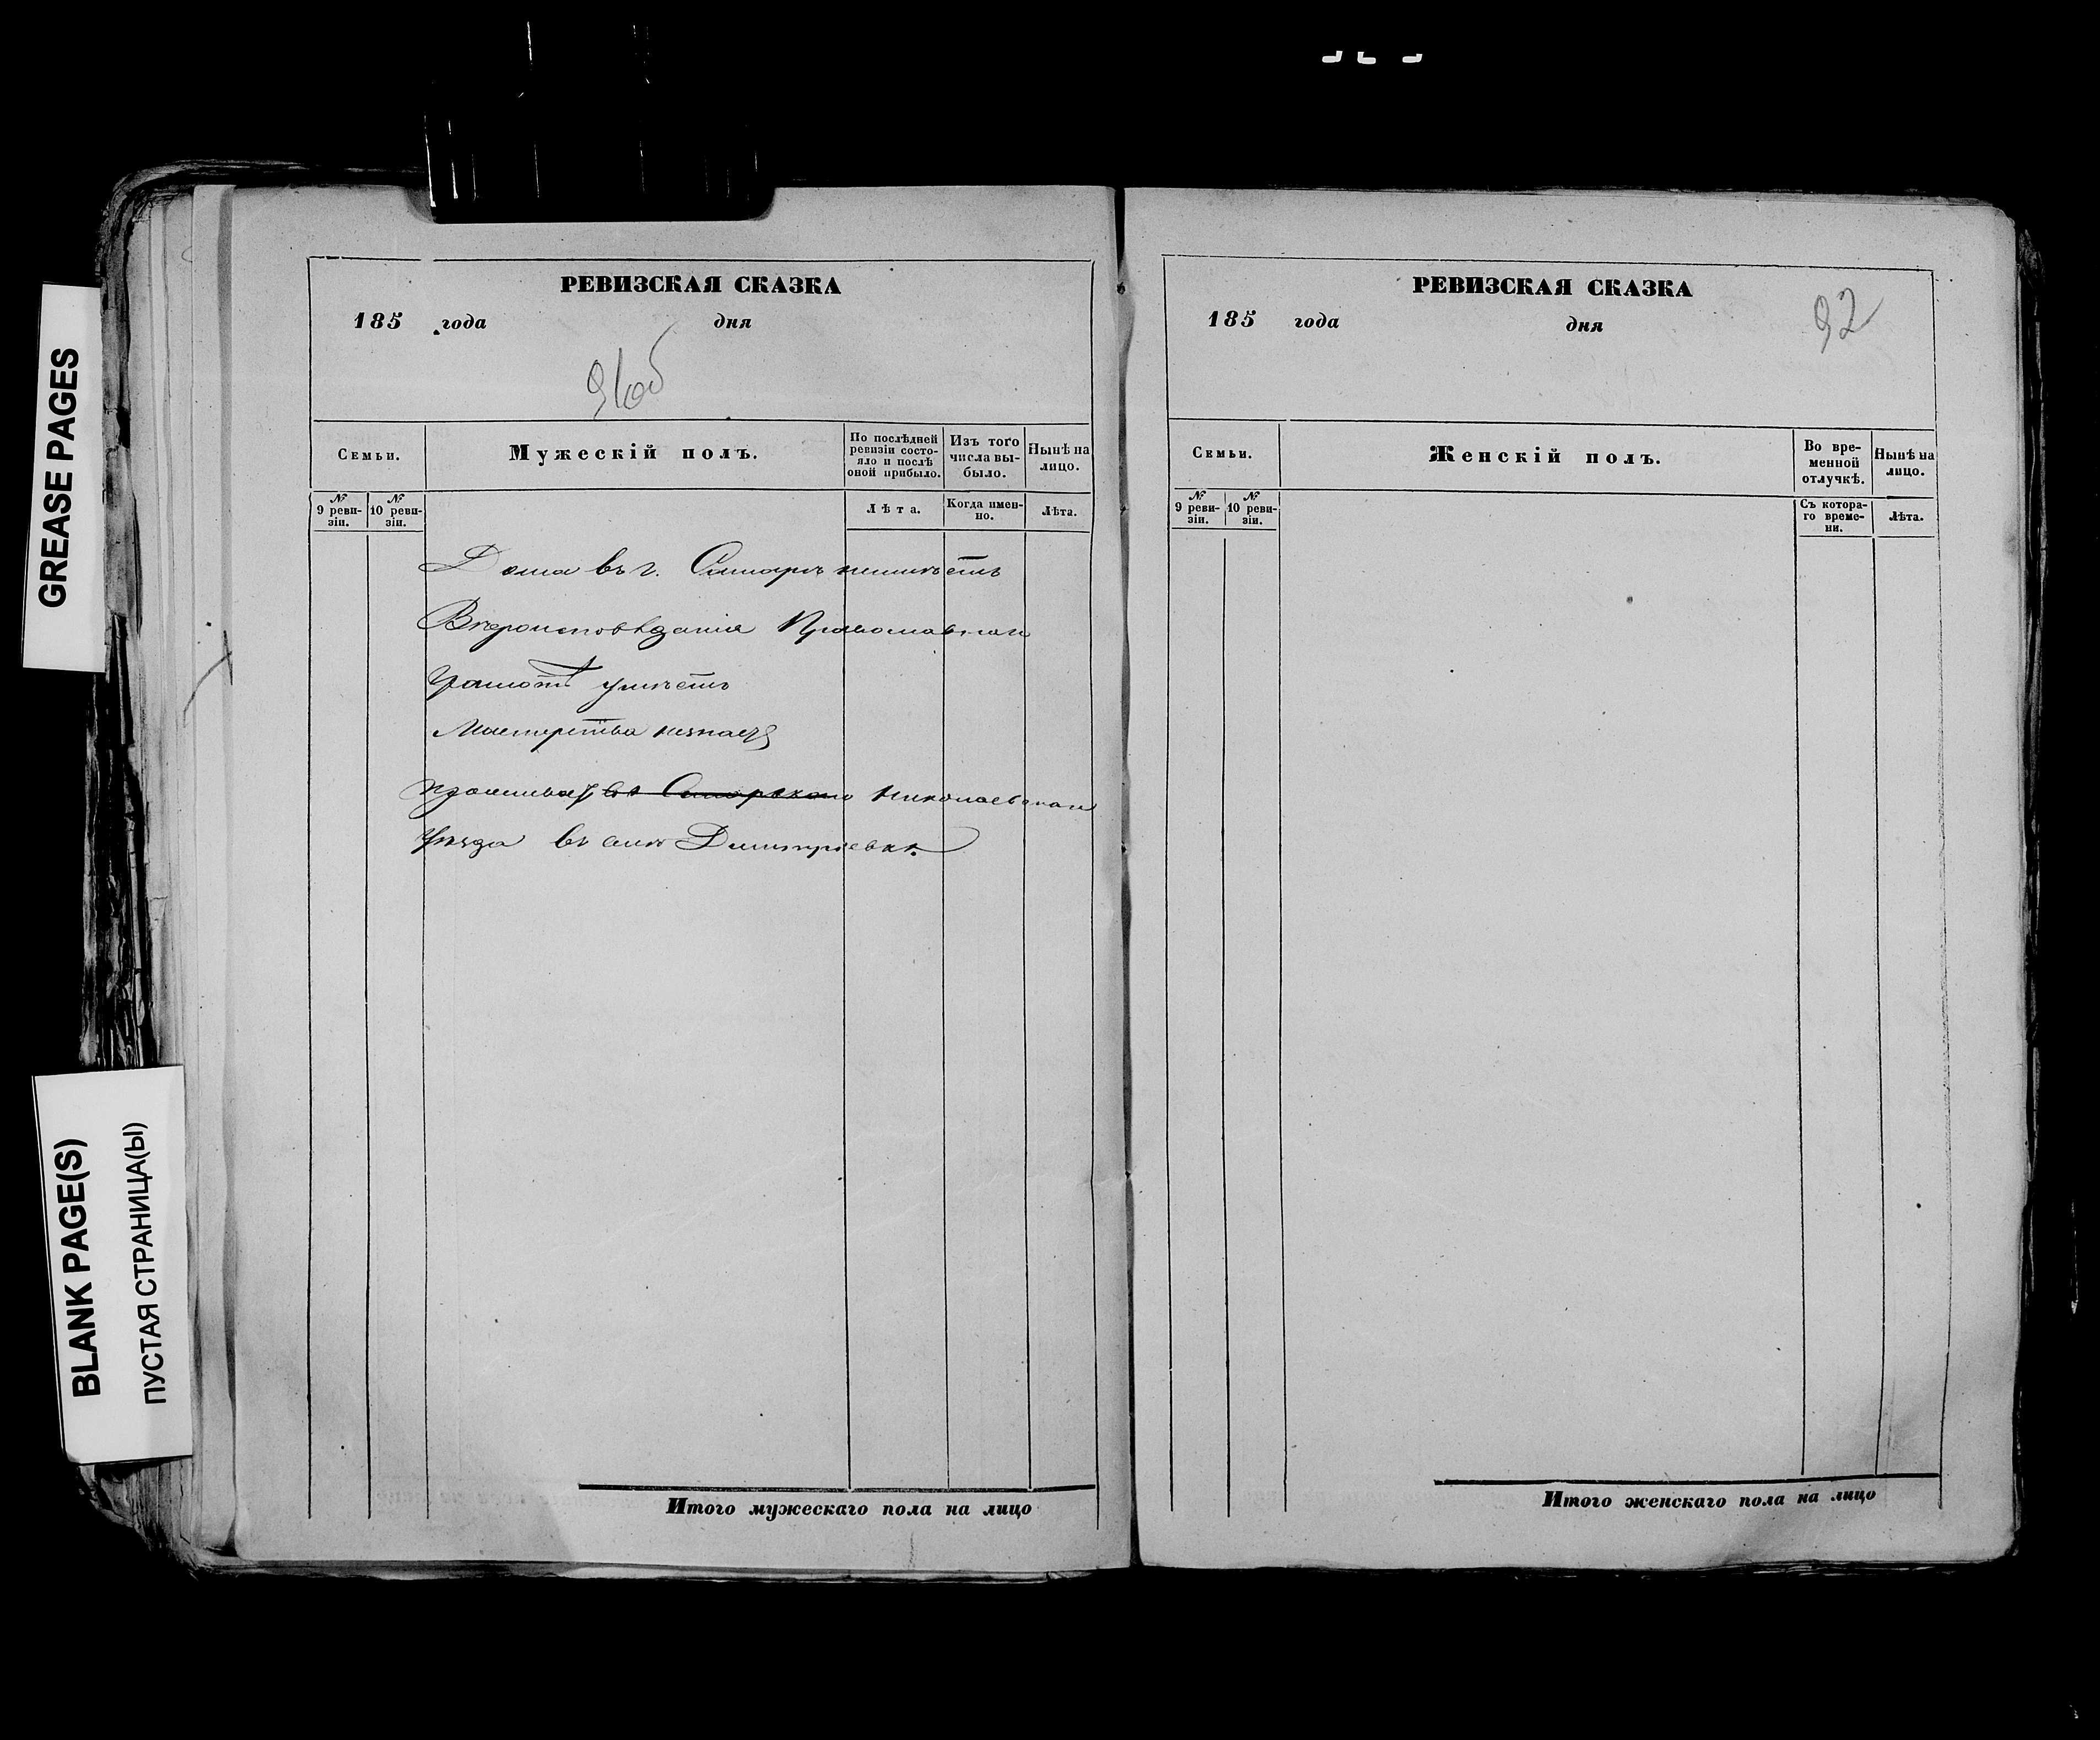 GREASE PAGES
BLANK PAGE(S)
ПУСТАЯ СТРАНИЦА(Ы)
РЕВИЗСКАЯ СКАЗКА
185 года дня
91об
Семьи.
Мужескій полъ.
По послѣдней
ревизіи состо-
яло и послѣ
оной прибыло.
Изъ того
числа вы-
было.
Нынѣ на
лицо.
№
9 реви-
зіи.
№
10 реви-
зіи.
Лѣта.
Когда имен-
но.
Лѣта.
Дома въ г. Самарѣ неимѣетъ
Вѣроисповѣданія Православнаго
Грамотѣ умѣетъ
Мастерства незнаетъ
проживаетъ въ Самарскомъ Николаевскаго
Уѣзда въ селѣ Дмитріевкѣ.
Итого мужескаго пола на лицо
РЕВИЗСКАЯ СКАЗКА
92
185 года дня
Семьи.
Женскій полъ.
Во вре-
менной
отлучкѣ.
Нынѣ на
лицо.
№
9 реви-
зіи.
№
10 реви-
зіи.
Съ котора-
го време-
ни.
Лѣта.
Итого женскаго пола на лицо